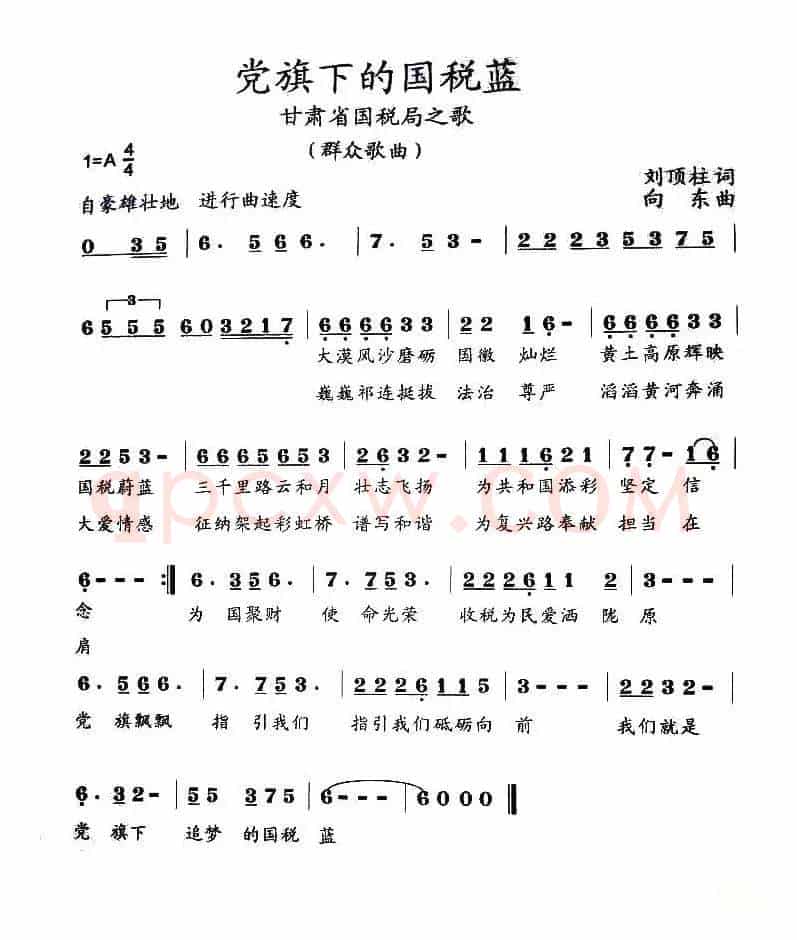 党旗下的国税蓝
甘肃省国税局之歌
（群众歌曲）
1=A 4/4
刘顶柱词
自豪雄壮地 进行曲速度
向 东曲
0 35 | 6. 566. | 7. 53- | 22235375 |
3
6555 603217 | 666633 22 16- | 666633
大漠风沙磨砺 国徽 灿烂 黄土高原辉映
巍巍祁连挺拔 法治 尊严 滔滔黄河奔涌
2253- | 6665653 | 2632- | 111621 | 77-16
国税蔚蓝 三千里路云和月 壮志飞扬 为共和国添彩 坚定 信
大爱情感 征纳架起彩虹桥 谱写和谐 为复兴路奉献 担当 在
6--- :‖ 6. 356. | 7. 753. | 222611 2 | 3---
念 为 国聚财 使 命光荣 收税为民爱洒 陇 原
肩
6. 566. | 7. 753. | 2226115 | 3--- | 2232- |
党 旗飘飘 指 引我们 指引我们砥砺向 前 我们就是
6. 32- | 55 375 | 6--- | 6000 ‖
党 旗下 追梦 的国税 蓝
qpcxw.com